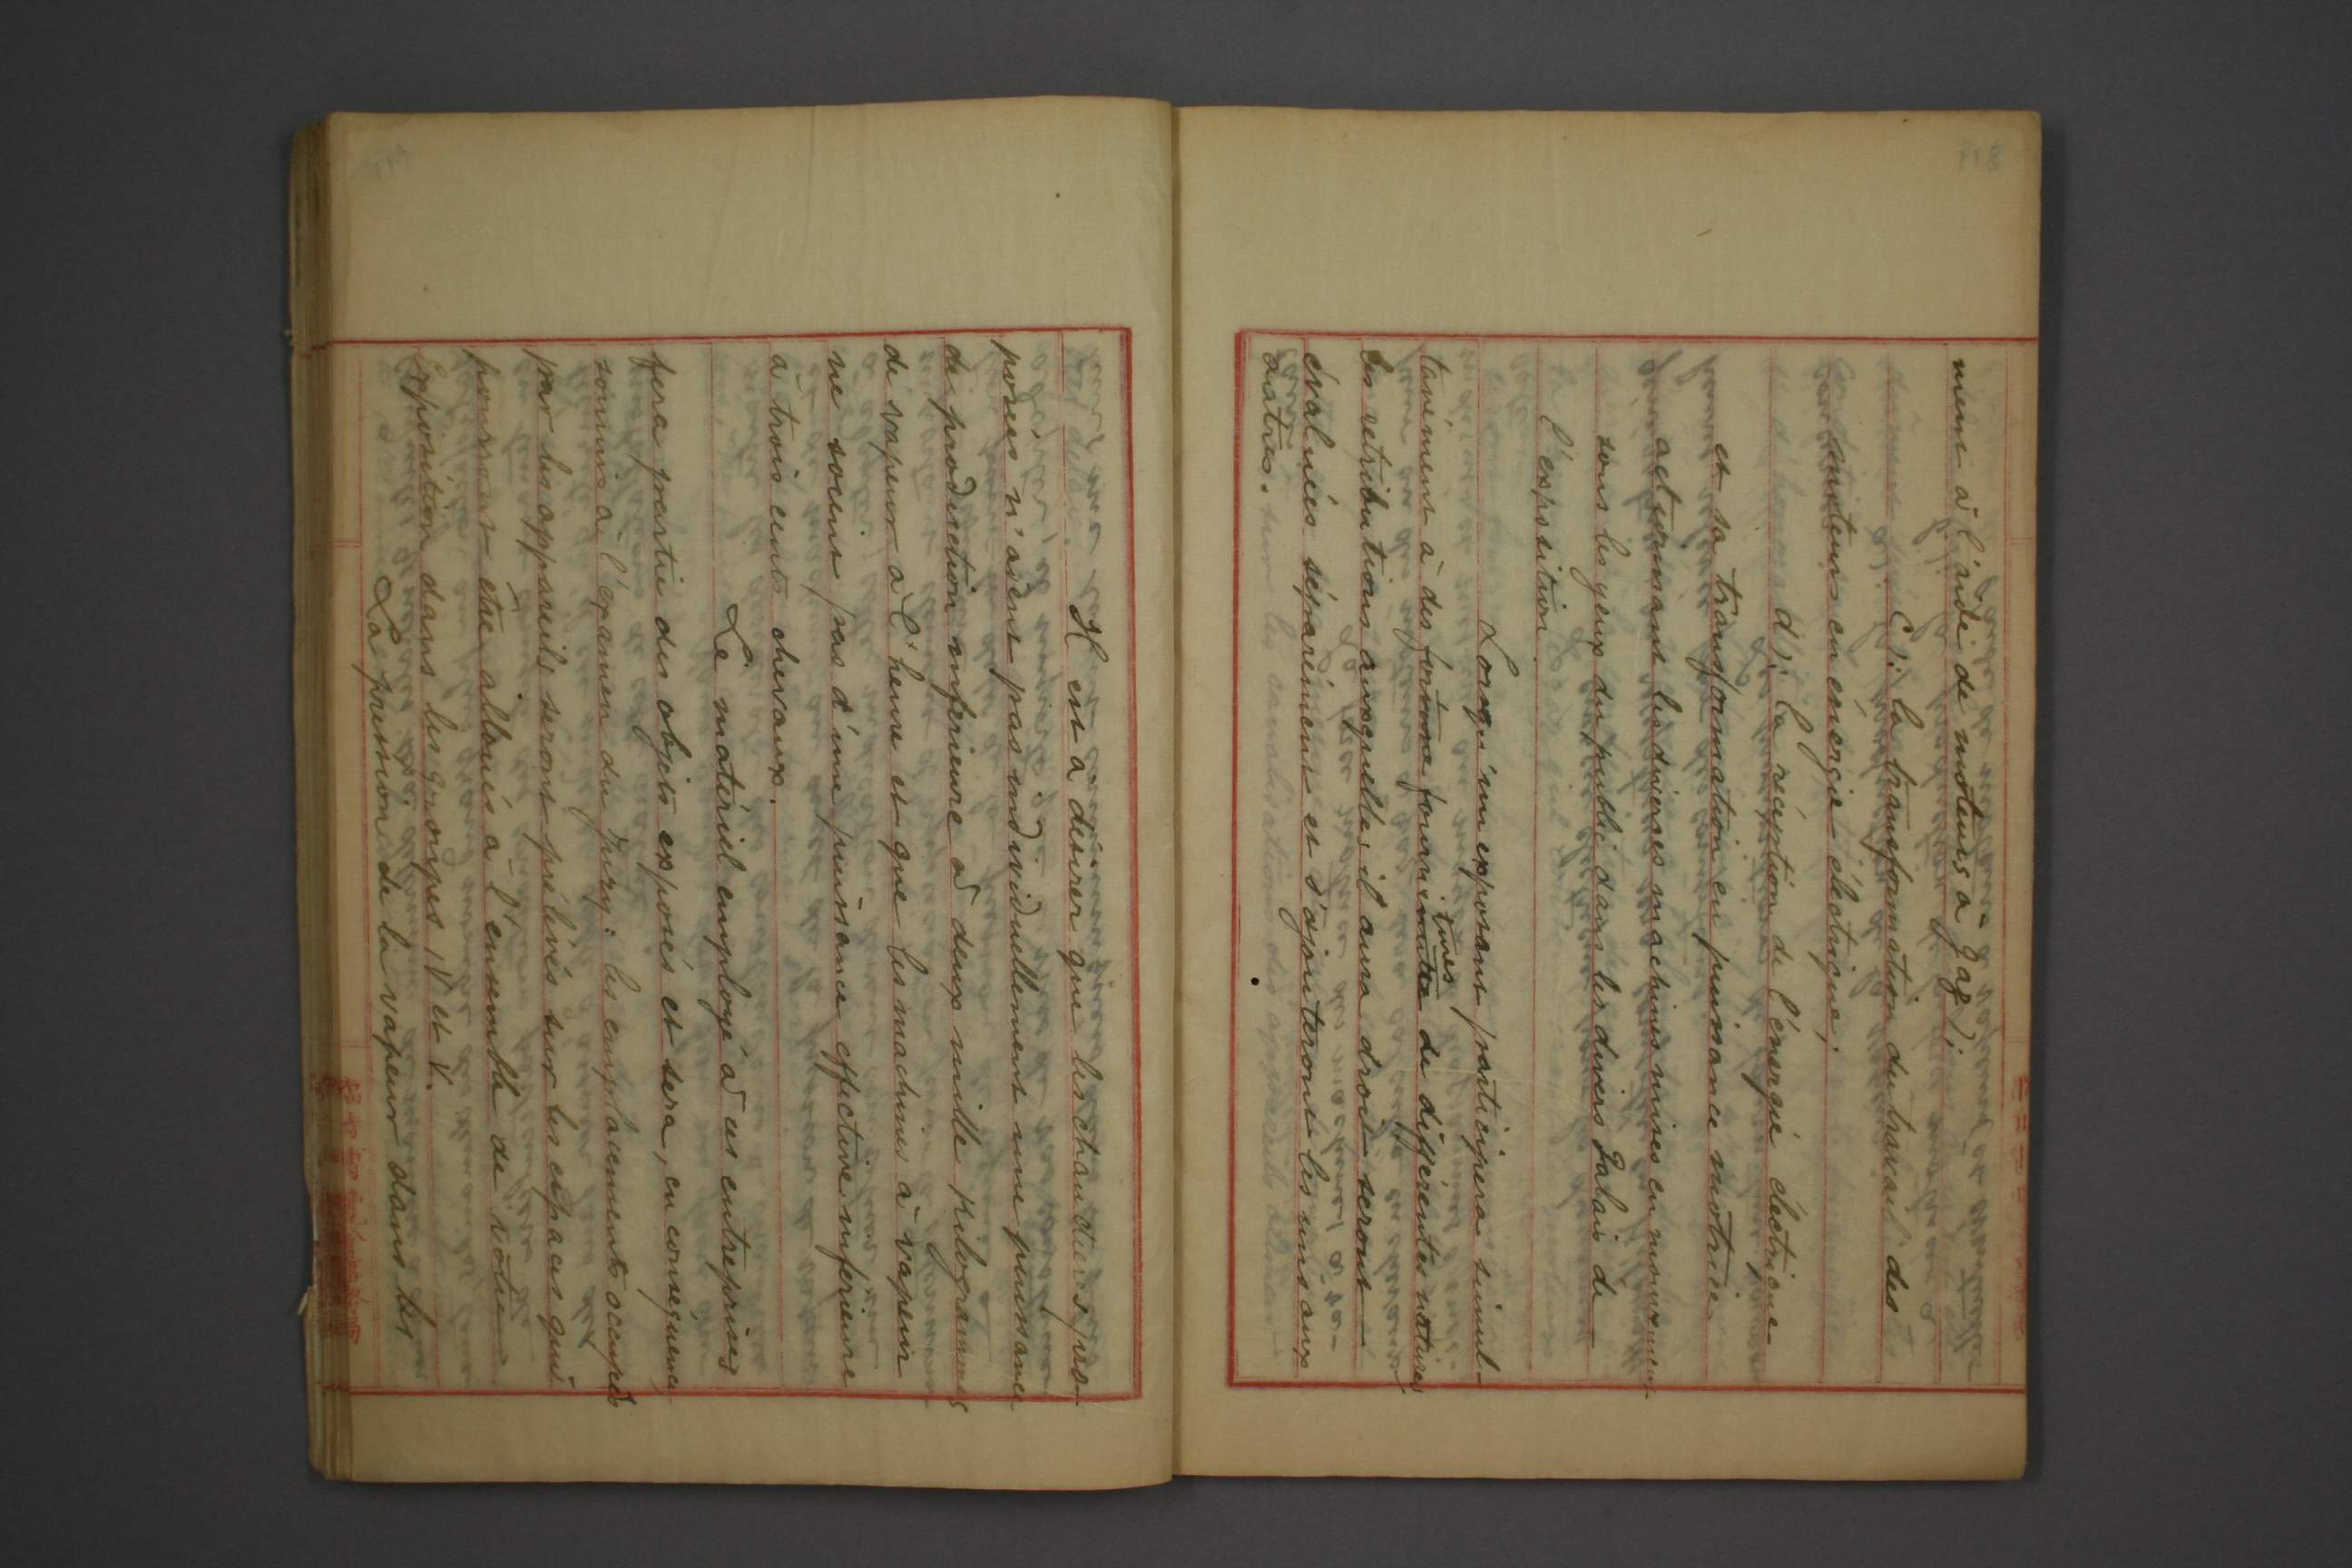 mène à l'aide de moteurs à gaz);
c): la transformation du travail des
moteurs en énergie électrique;
d): la réception de l'énergie électrique
et sa transformation en puissance motrice
actionnant les diverses machines mises en mouvement
sous les yeux du public dans les divers Palais de
l'exposition.
Lorsqu'un exposant participera simul-
tanément à des fourni tures de différentes natures,
les retributions auxquelles il aura droit seront
évaluées séparément et s'ajouteront les unes aux
autres.
Il est à désirer que les chaudières pro-
posées n'aient pas individuellement une puissance
de production inférieure à deux mille Kilogrammes
de vapeur à l'heure et que les machines à vapeur
ne soient pas d'une puissance effective inférieure
à trois cents chevaux.
Le matériel employé à ces entreprises
fera partie des objets exposés et sera, en conséquence,
soumis à l'éxamen du Jury: les emplacements occupés
par les appareils seront prélevés sur les espaces qui
pourront être alloués à l'ensemble de votre
Exposition dans les groupes IV et V.
La pression de la vapeur dans les